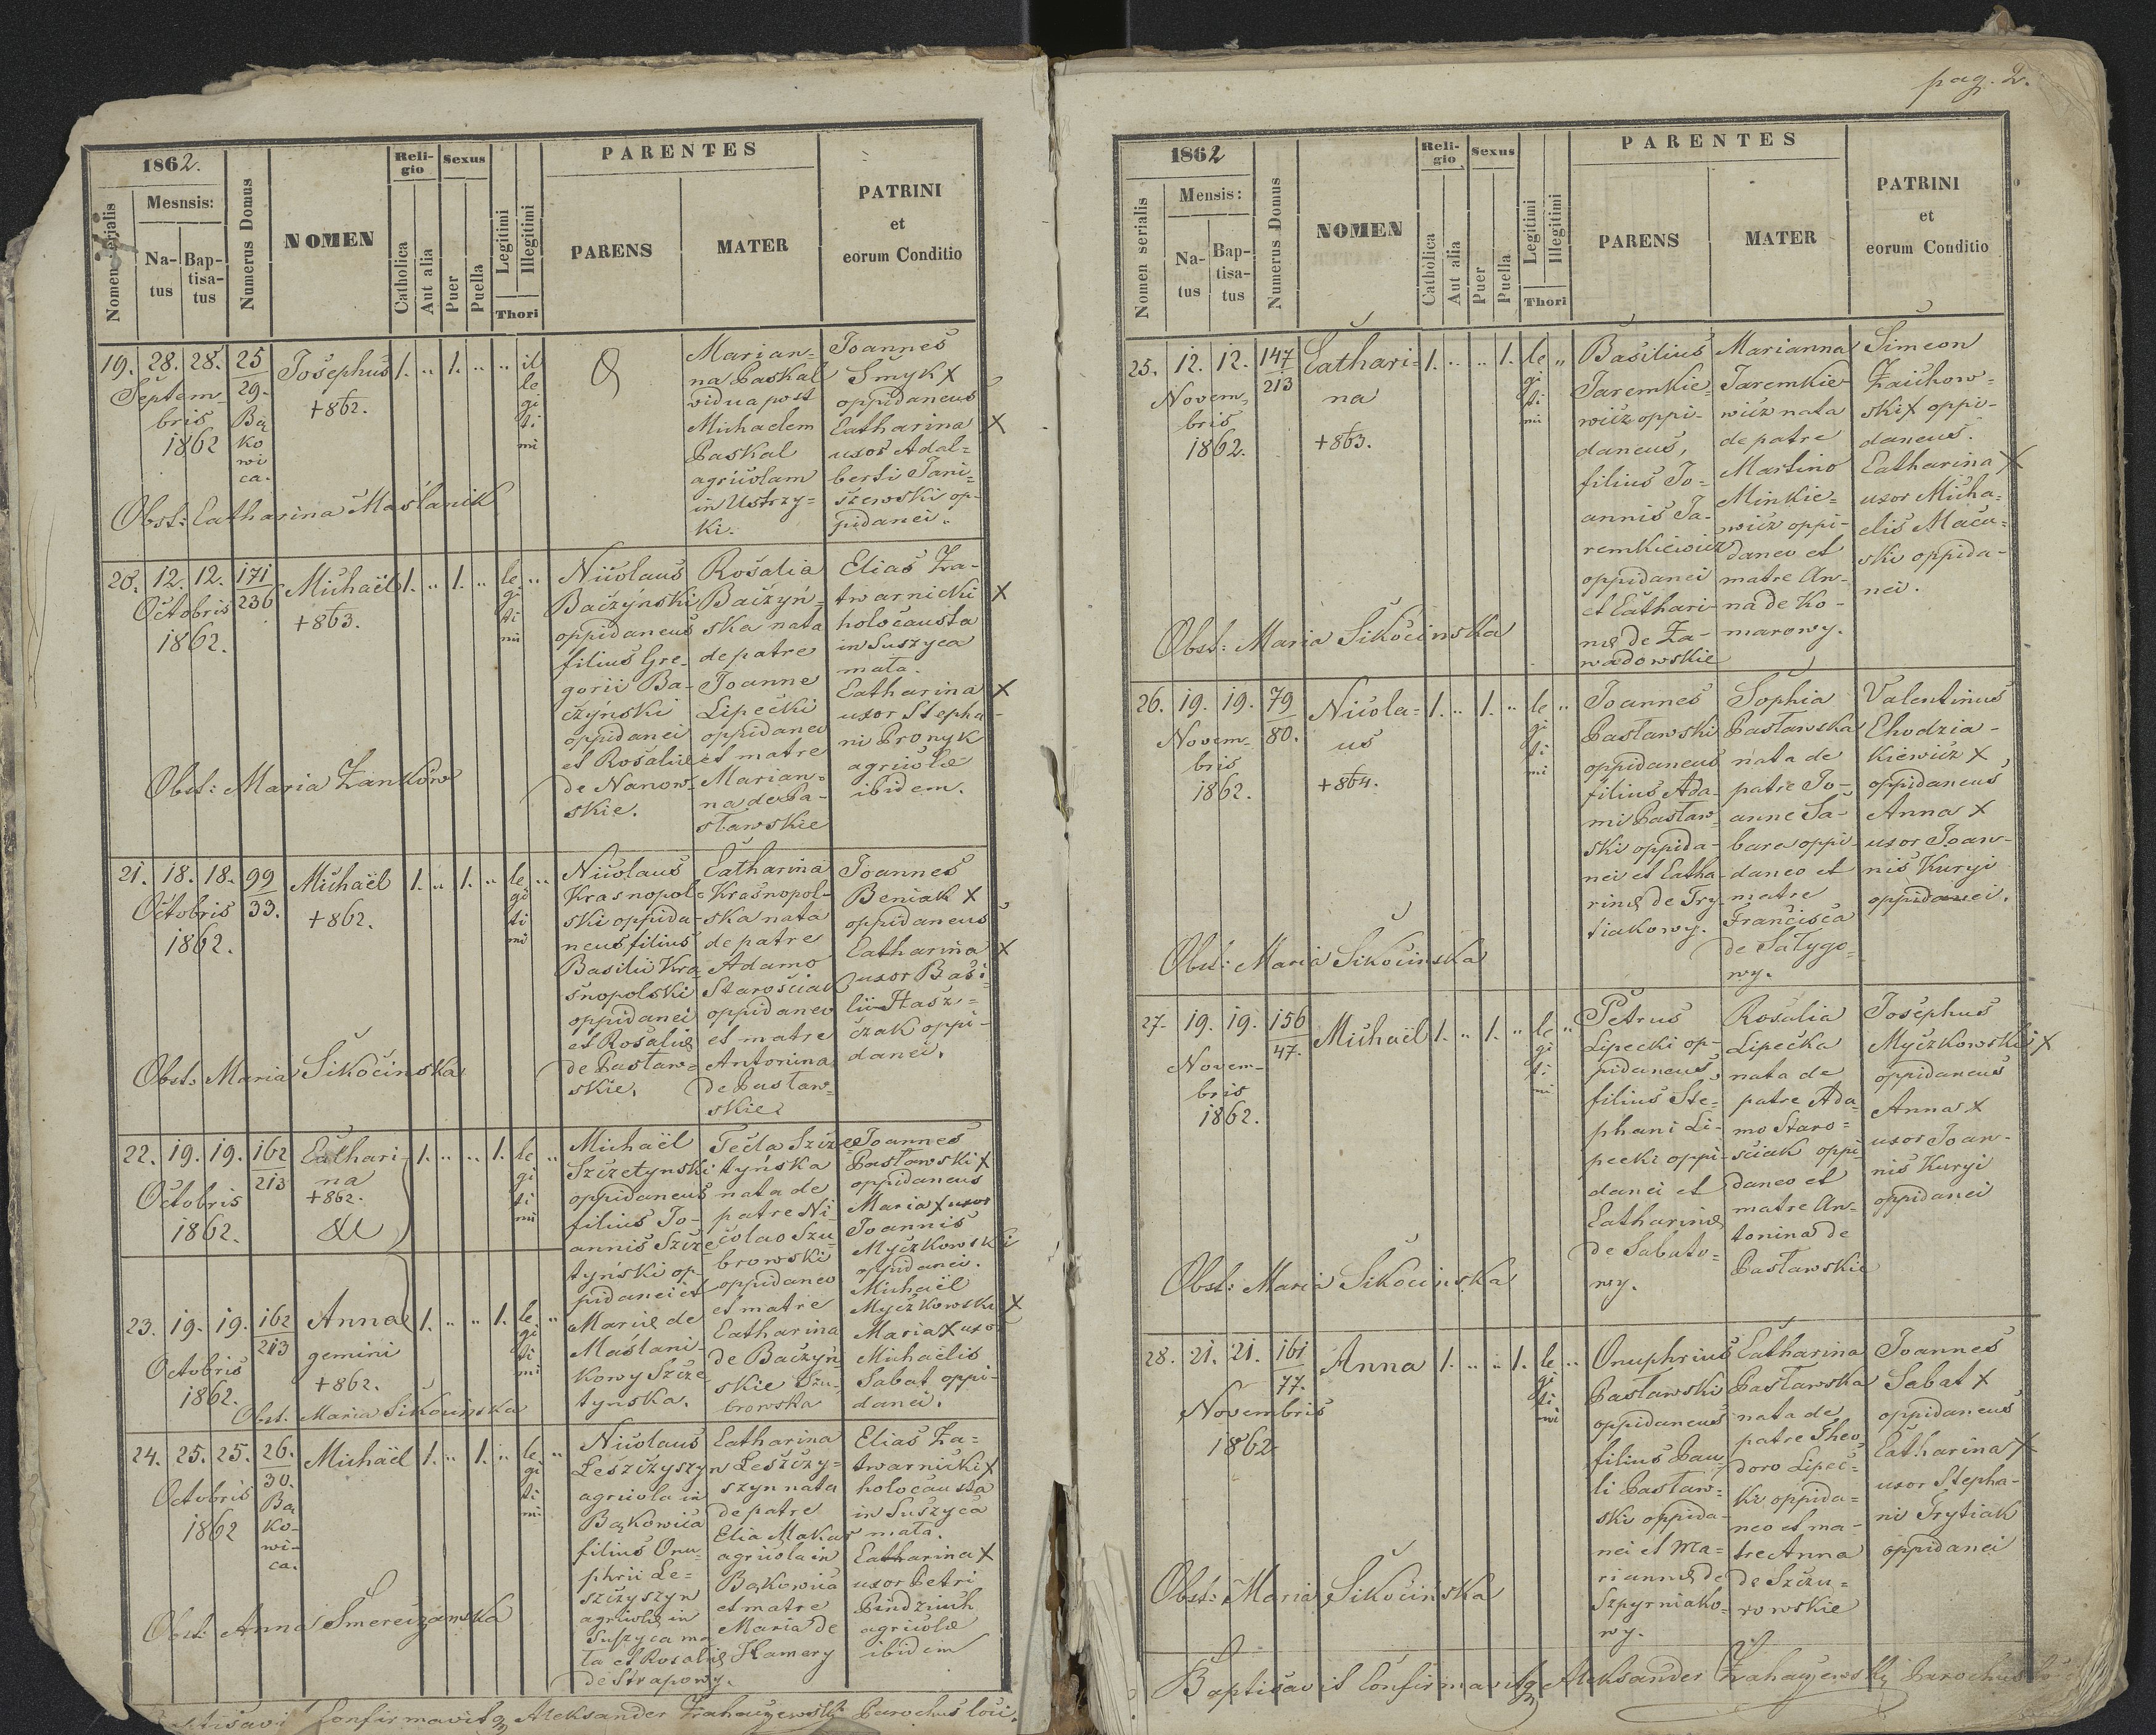 1862.
Mesnsis:
Nomen serialis
Na-
tus
Bap-
tisa-
tus
Numerus Domus
NOMEN
Reli-
gio
Catholica
Aut alia
Sexus
Puer
Puella
Legitimi
Illegitimi
Thori
PARENTES
PARENS
MATER
PATRINI
et
eorum Conditio
19. 28. 28. 25
29.
Septem-
bris
1862
Bą
ko
wi
ca.
Josephus
+862.
1. .. 1. .. ..
il
le
gi
ti
mi
Marian=
na Paskal
vidua post
Michaelem
Paskal
agricolam
in Ustrzy=
ki.
Joannes
Smyk X
oppidaneus
Catharina X
uxor Adal=
berti Jani=
szewski op-
pidanei.
Obst: Catharina Maślanik
20. 12. 12. 171
236
Octobris
1862.
Michaël
+863.
1. .. 1. ..
le
gi
ti
mi
..
Nicolaus
Baczyński
oppidaneus
filius Gre-
gorii Ba-
czyński
oppidanei
et Rosaliæ
de Nanow-
skie.
Rosalia
Baczyń-
ska nata
de patre
Joanne
Lipecki
oppidaneo
et matre
Marian=
na de Pa-
sławskie
Elias Za-
twarnicki X
holocausta
in Suszyca
mała.
Catharina X
uxor Stepha-
ni Pronyk
agricolæ
ibidem.
Obst: Maria Zanków
21. 18. 18. 99
33.
Octobris
1862.
Michaël
+862.
1. .. 1. ..
le
gi
ti
mi
..
Nicolaus
Krasnopol=
ski oppida-
neus filius
Basilii Kra
snopolski
oppidanei
et Rosaliæ
de Pasław=
skie.
Catharina
Krasnopol-
ska nata
de patre
Adamo
Starościak
oppidaneo
et matre
Antonina
de Pasław=
skie
Joannes
Beniak X
oppidaneus
Catharina X
uxor Basi=
lii Hasz=
czak oppi-
danei.
Obst: Maria Sikocinska
22. 19. 19. 162
213
Octobris
1862.
Cathari-
na
+862.
&
1. .. .. 1.
le
gi
ti
mi
..
Michaël
Szczetynski
oppidaneus
filius Jo-
annis Szcze
tyński op-
pidanei et
Mariæ de
Maślani-
kowy Szcze
tynska.
Tecla Szcze
tyńska
nata de
patre Ni-
colao Szu
browski
oppidaneo
et matre
Catharina
de Baczyń
skie Szu-
browska
Joannes
Pasławski X
oppidaneus
Maria X uxor
Joannis
Myczkowski
oppidanei.
Michaël
Myczkowski X
Maria X uxor
Michaëlis
Sabat oppi-
danei.
23. 19. 19. 162
213
Octobris
1862.
Anna
gemini
+862.
1. .. .. 1.
le
gi
ti
mi
..
Obst. Maria Sikocinska
24. 25. 25. 26.
30.
Octobris
1862
Bą
ko-
wi-
ca.
Michaël
1. .. 1. ..
le
gi
ti
mi
..
Nicolaus
Leszczyszyn
agricola in
Bąkowica
filius Onu-
phrii Le=
szczyszyn
agricolæ in
Suszyca ma
ła et Rosaliæ
de Strapowy.
Catharina
Leszczy=
szyn nata
de patre
Elia Makar
agricola in
Bąkowica
et matre
Maria de
Hamery
Elias Za=
twarnicki X
holocausta
in Suszyca
mała.
Catharina X
uxor Petri
Pindziuch
agricolæ
ibidem
Obst: Anna Smereczanska
Confirmavitq Aleksander Parochus loci.
pag. 2.
1862
Mensis:
Nomen serialis
Na-
tus
Bap-
tisa-
tus
Numerus Domus
NOMEN
Reli-
gio
Catholica
Aut alia
Sexus
Puer
Puella
Legitimi
Illegitimi
Thori
PARENTES
PARENS
MATER
PATRINI
et
eorum Conditio
25. 12. 12. 147
213
Novem-
bris
1862.
Cathari=
na
+863.
1. .. .. 1.
le
gi
ti
mi
..
Basilius
Jaremkie=
wicz oppi-
daneus,
filius Jo=
annis Ja-
remkiewicz
oppidanei
et Cathari-
næ de Za-
wadowskie
Marianna
Jaremkie-
wicz nata
de patre
Martino
Minkie=
wicz oppi-
daneo et
matre An-
na de Ko-
marowy.
Simeon
Zaichow=
ski X oppi-
daneus.
Catharina X
uxor Micha=
elis Macu=
ski oppida-
nei.
Obst: Maria Sikocinska
26. 19. 19. 79
80.
Novem-
bris
1862.
Nicola=
us
+864.
1. .. 1. ..
le
gi
ti
mi
..
Joannes
Pasławski
oppidaneus
filius Ada-
mi Pasław-
ski oppida-
nei et Catha-
rinæ de Try
tiakowy.
Sophia
Pasławska
nata de
patre Jo-
anne Sa-
bara oppi-
daneo et
matre
Francisca
de Sałygo=
wy.
Valentinus
Chodzia-
kiewicz X
oppidaneus
Anna X
uxor Joan-
nis Kuryi
oppidanei.
Obst: Maria Sikocinska
27. 19. 19. 156
47.
Novem-
bris
1862.
Michaël
1. .. 1. ..
le
gi
ti
mi
..
Petrus
Lipecki op-
pidaneus,
filius Ste-
phani Li-
pecki oppi-
danei et
Catharinæ
de Sabato=
wy.
Rosalia
Lipecka
nata de
patre Ada-
mo Staro=
sciak oppi-
daneo et
matre An-
tonina de
Pasławskie
Josephus
Myczkowski X
oppidaneus
Anna X
uxor Joan-
nis Kuryi
oppidanei
Obst: Maria Sikocinska
28. 21. 21. 161
77.
Novembris
1862.
Anna
1. .. .. 1.
le
gi
ti
mi
..
Onuphrius
Pasławski
oppidaneus
filius Pau-
li Pasław=
ski oppida-
nei et Ma=
riannæ de
Szpyrniako-
wy.
Catharina
Pasławska
nata de
patre Theo
doro Lipec=
ki oppida=
neo et ma-
tre Anna
de Szczu=
rowskie
Joannes
Sabat X
oppidaneus
Catharina X
uxor Stepha-
ni Trytiak
oppidanei
Obst: Maria Sikocińska
Baptisavit Confirmavitq Aleksander Parochus